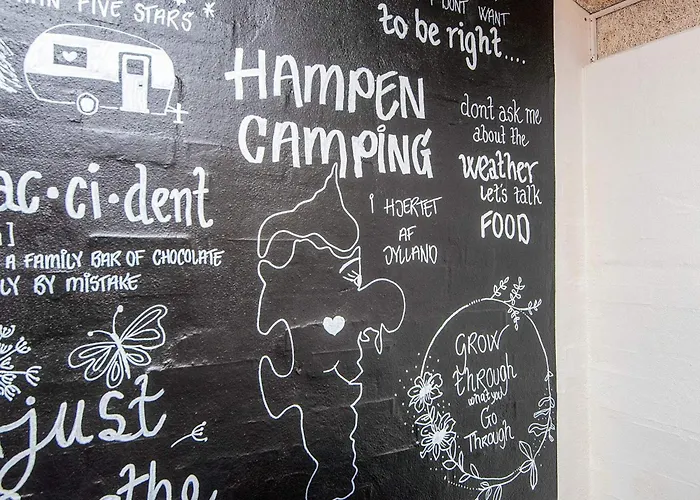 FIVE STARS
DONT WANT
to be right....
HAMPEN
CAMPING
dont ask me
about the
weather
let's talk
FOOD
ac•ci•dent
I HJERTET
AF
JYLLAND
A FAMILY BAR OF CHOCOLATE
LY BY MISTAKE
GROW
through
what you
Go
Through
just
the